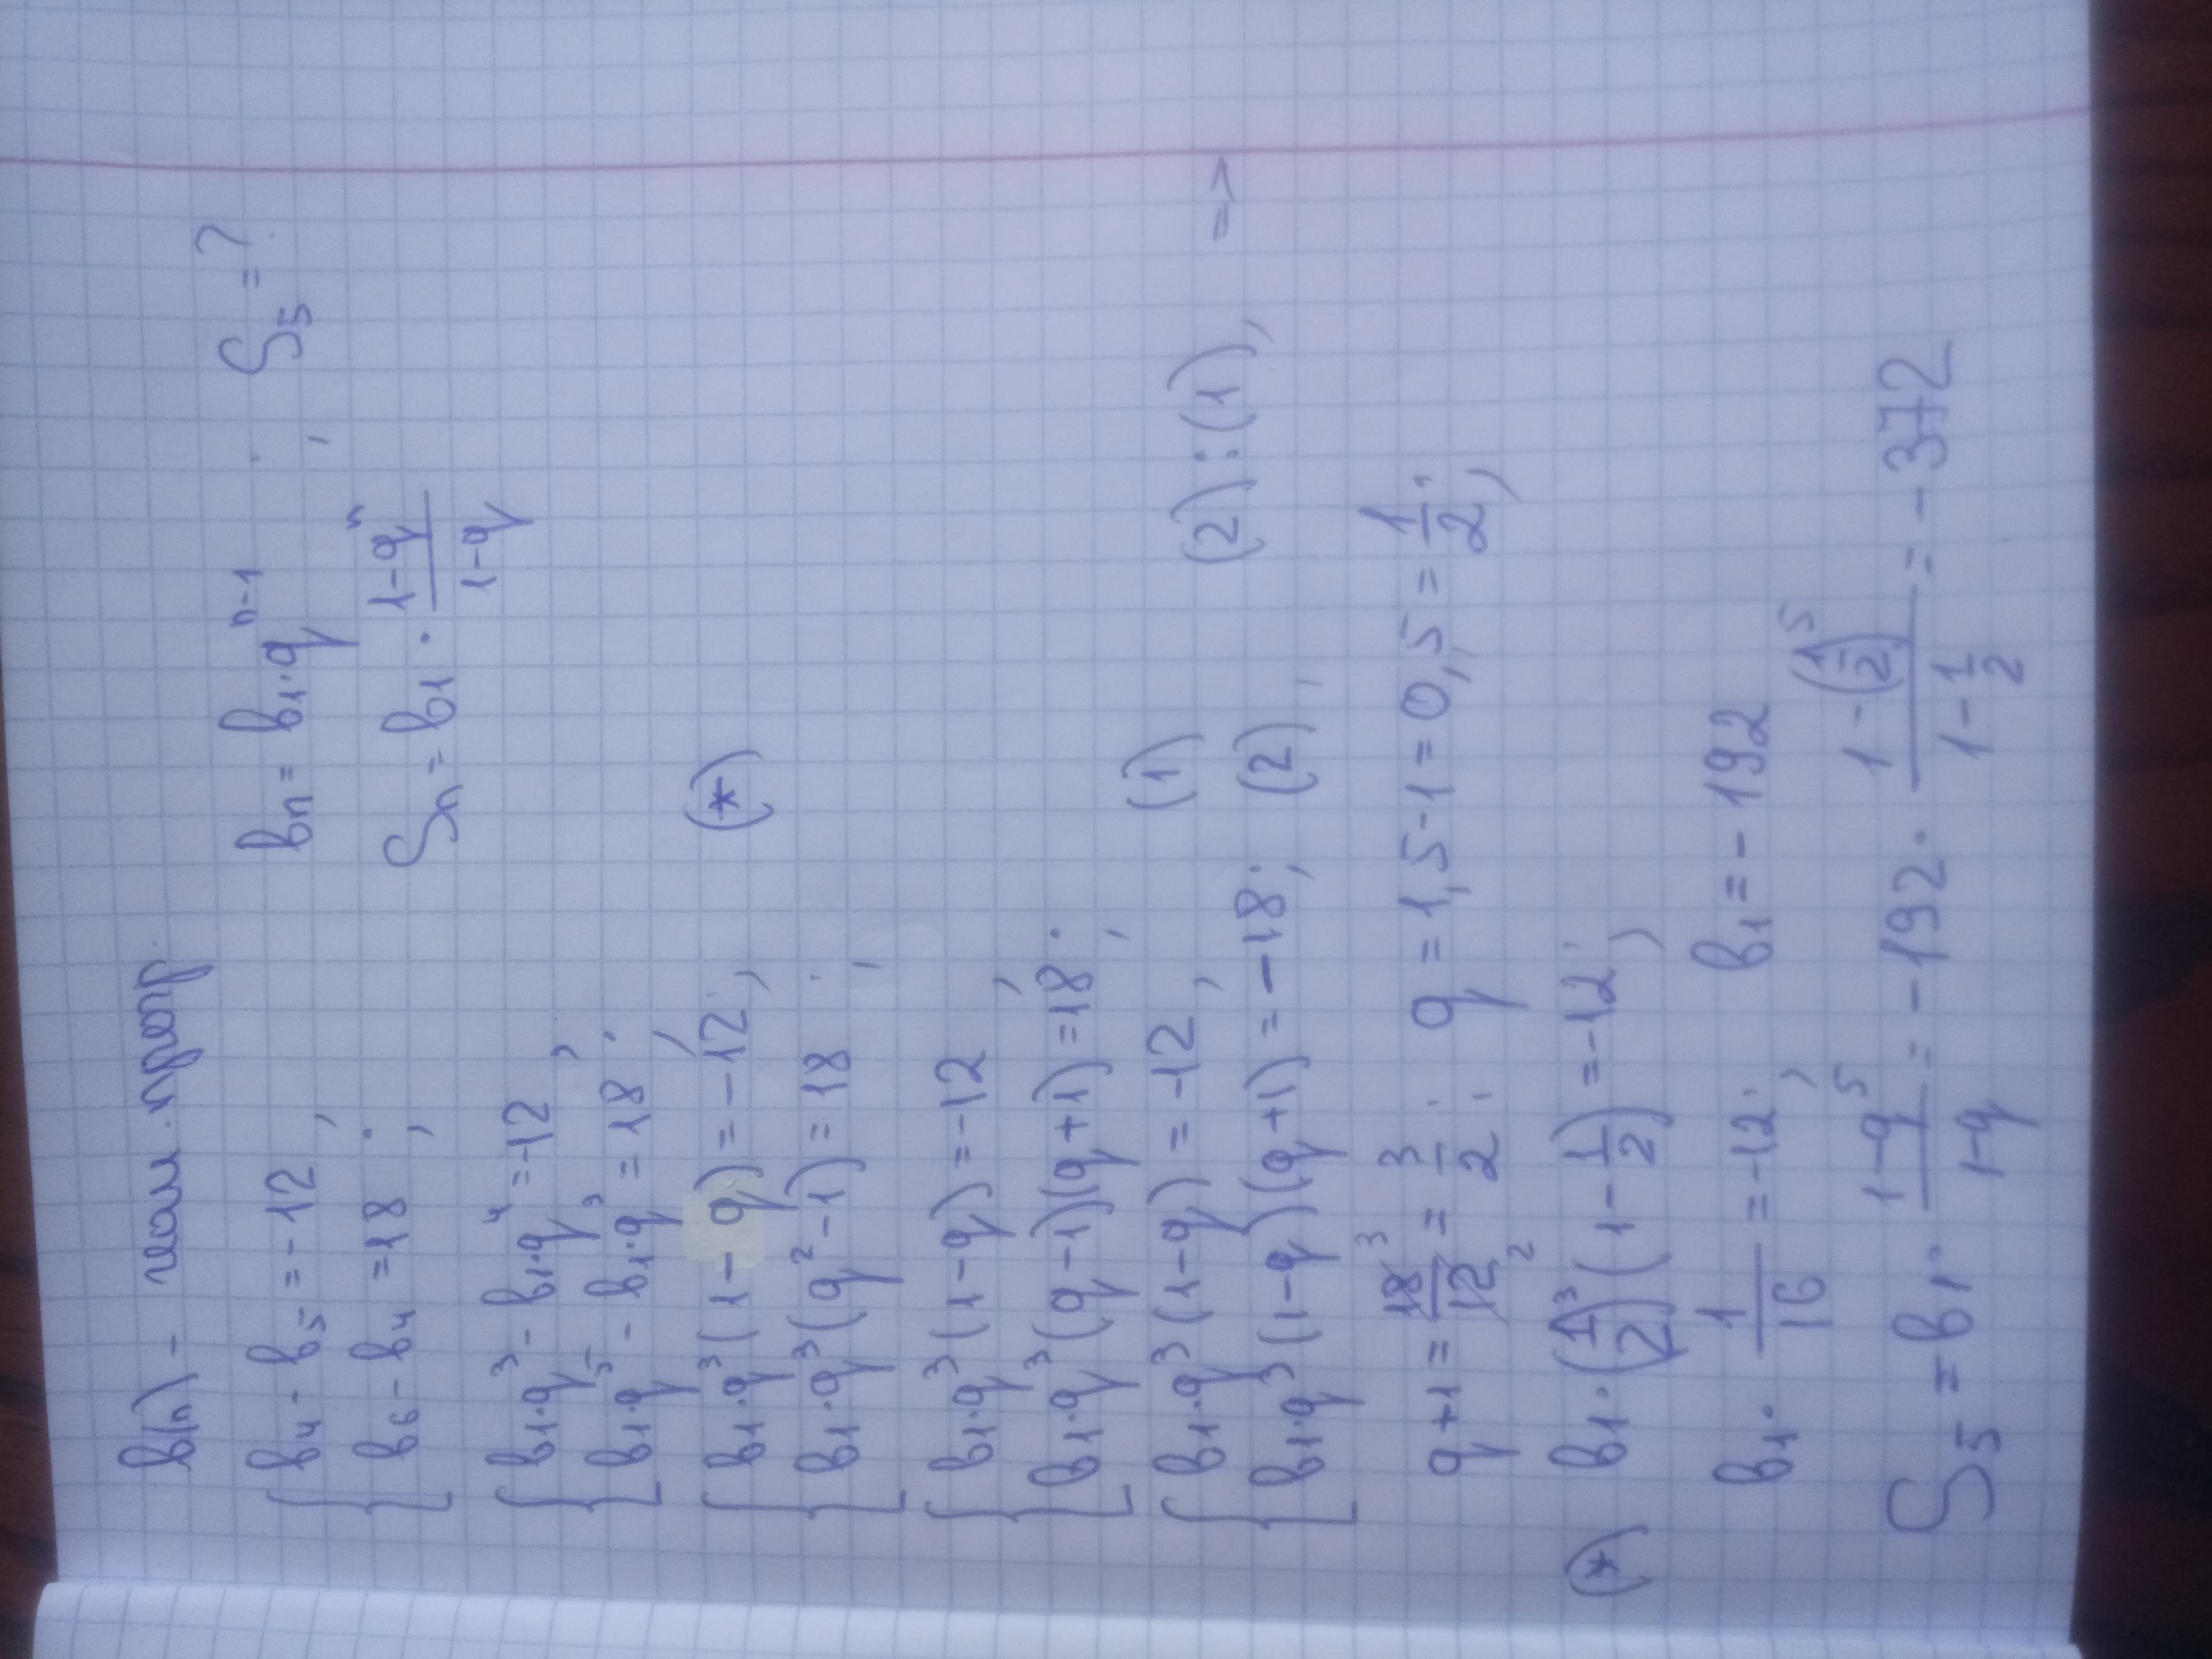 b(n) - геом. прогр.
{ b₄ - b₅ = -12,
b₆ - b₄ = 18;
bₙ = b₁·qⁿ⁻¹; S₅ = ?
Sₙ = b₁ · (1-qⁿ)/(1-q)
{ b₁·q³ - b₁·q⁴ = -12,
b₁·q⁵ - b₁·q³ = 18;
{ b₁·q³(1-q) = -12, (*)
b₁·q³(q²-1) = 18;
{ b₁·q³(1-q) = -12,
b₁·q³(q-1)(q+1) = 18;
{ b₁·q³(1-q) = -12, (1)
b₁·q³(1-q)(q+1) = -18; (2), (2):(1), =>
q+1 = 18³/12² = 3/2; q = 1,5-1 = 0,5 = 1/2;
(*) b₁·(1/2)³(1-1/2) = -12;
b₁· 1/16 = -12; b₁ = -192
S₅ = b₁· (1-q⁵)/(1-q) = -192· (1-(1/2)⁵)/(1-1/2) = -372